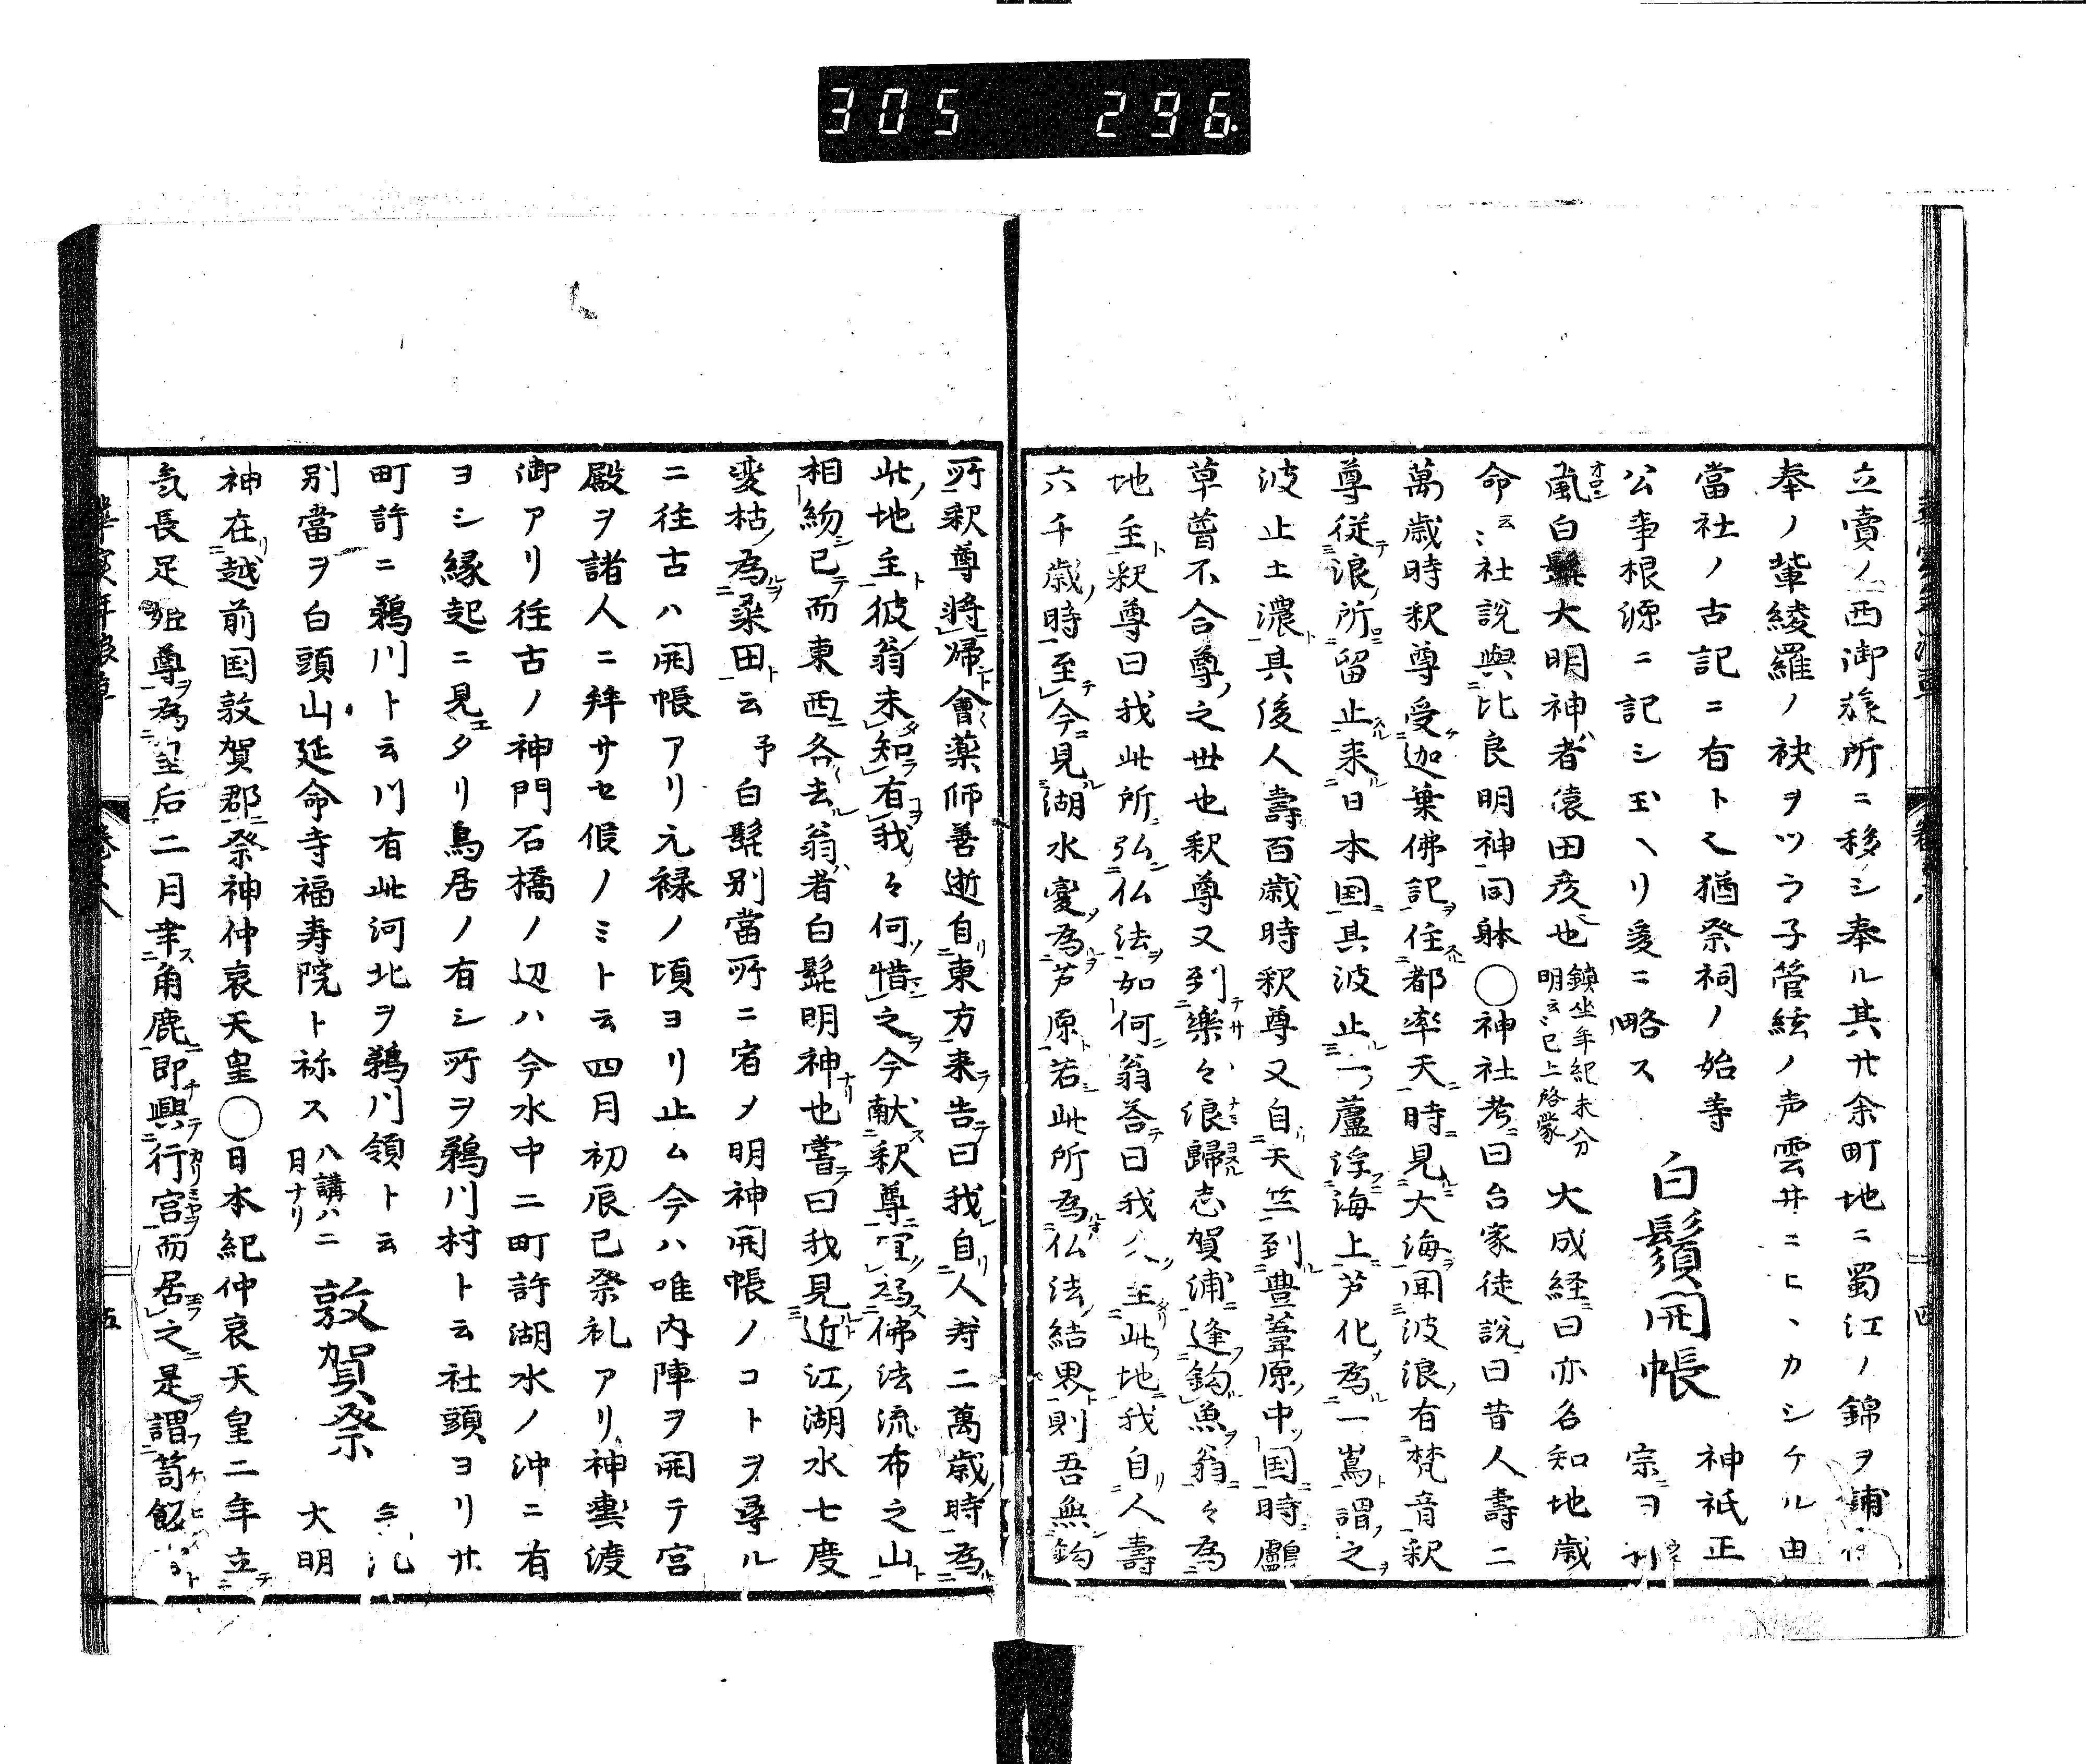 305 296.
立賣ノ西御旅所ニ移シ奉ル其廿余町地ニ蜀江ノ錦ヲ鋪
奉ノ輩綾羅ノ袂ヲツラ子管絃ノ声雲井ニヒヽカシケル由
當社ノ古記ニ有ト又猶祭祠ノ始等
公事根源ニ記シ玉ヘリ爰ニ略ス
白鬚開帳
神祇正
宗ヲ
嵐白鬚大明神者猿田彦也
鎮坐年紀未分
明云々已上啓蒙
大成経曰亦名知地歳
命云々社説與比良明神同躰〇神社考曰台家徒説曰昔人壽二
萬歳時釈尊受迦葉佛記住都率天時見大海聞波浪有梵音釈
尊従浪所留止来日本国其波止一蘆浮海上芦化為一嶌謂之
波止土濃其後人壽百歳時釈尊又自天竺到豊葦原中国時鸕
草葺不合尊之世也釈尊又到樂々浪歸志賀浦逢釣魚翁々為
地主釈尊曰我此所弘仏法如何翁荅曰我人主此地我自人壽
六千歳時至今見湖水變為芦原若此所為仏法結界則吾無釣
所釈尊將帰會薬師善逝自東方来告曰我自人寿二萬歳時為
此地主彼翁未知有我々何惜之今献釈尊宜為佛法流布之山
相約已而東西各去翁者白髭明神也嘗曰我見近江湖水七度
変枯為桑田云 予白髭別當所ニ宿メ明神開帳ノコトヲ尋ル
ニ徃古ハ開帳アリ元禄ノ頃ヨリ止ム今ハ唯内陣ヲ開テ宮
殿ヲ諸人ニ拝サセ侯ノミト云四月初辰巳祭礼アリ神輿渡
御アリ徃古ノ神門石橋ノ辺ハ今水中二町許湖水ノ沖ニ有
ヨシ縁起ニ見エタリ鳥居ノ有シ所ヲ鵜川村ト云社頭ヨリ廿
町許ニ鵜川ト云川有此河北ヲ鵜川領ト云
別當ヲ白頭山延命寺福寿院ト祢ス
八講ハ二
月ナリ
敦賀祭
大明
神在越前国敦賀郡祭神仲哀天皇〇日本紀仲哀天皇二年立
気長足姫尊為皇后二月幸角鹿即興行宮而居之是謂笥飯
巻之八
五